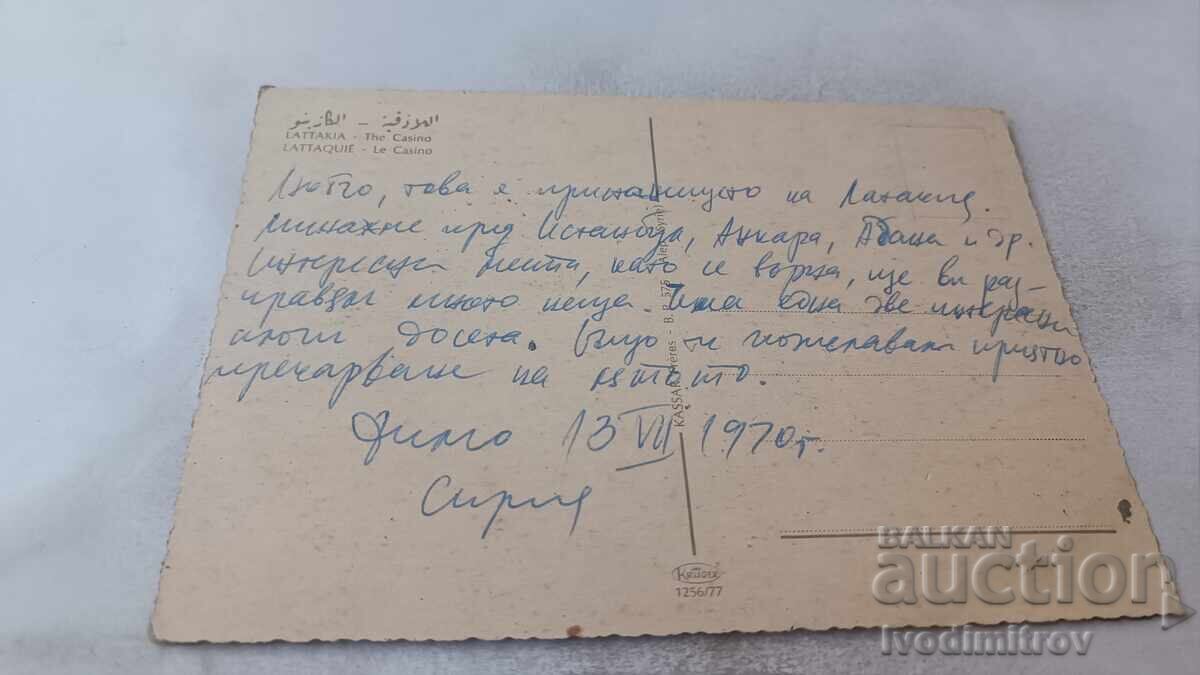 اللاذقية - الكازينو
LATTAKIA - The Casino
LATTAQUIÉ - Le Casino
това е пристанището на Латакия.
Минахме през Истанбул, Анкара, Адана и др.
Интересни места, като се върна, ще ви раз-
правям много неща. Има една две интересни
досега. ти пожелавам приятно
прекарване на лятото.
Димо 13 VII 1970 г.
Сирия
KASSAR Frères - B.P. 575 - Alep (Syrie)
KRÜGER
1256/77
BALKAN
auction
Ivodimitrov